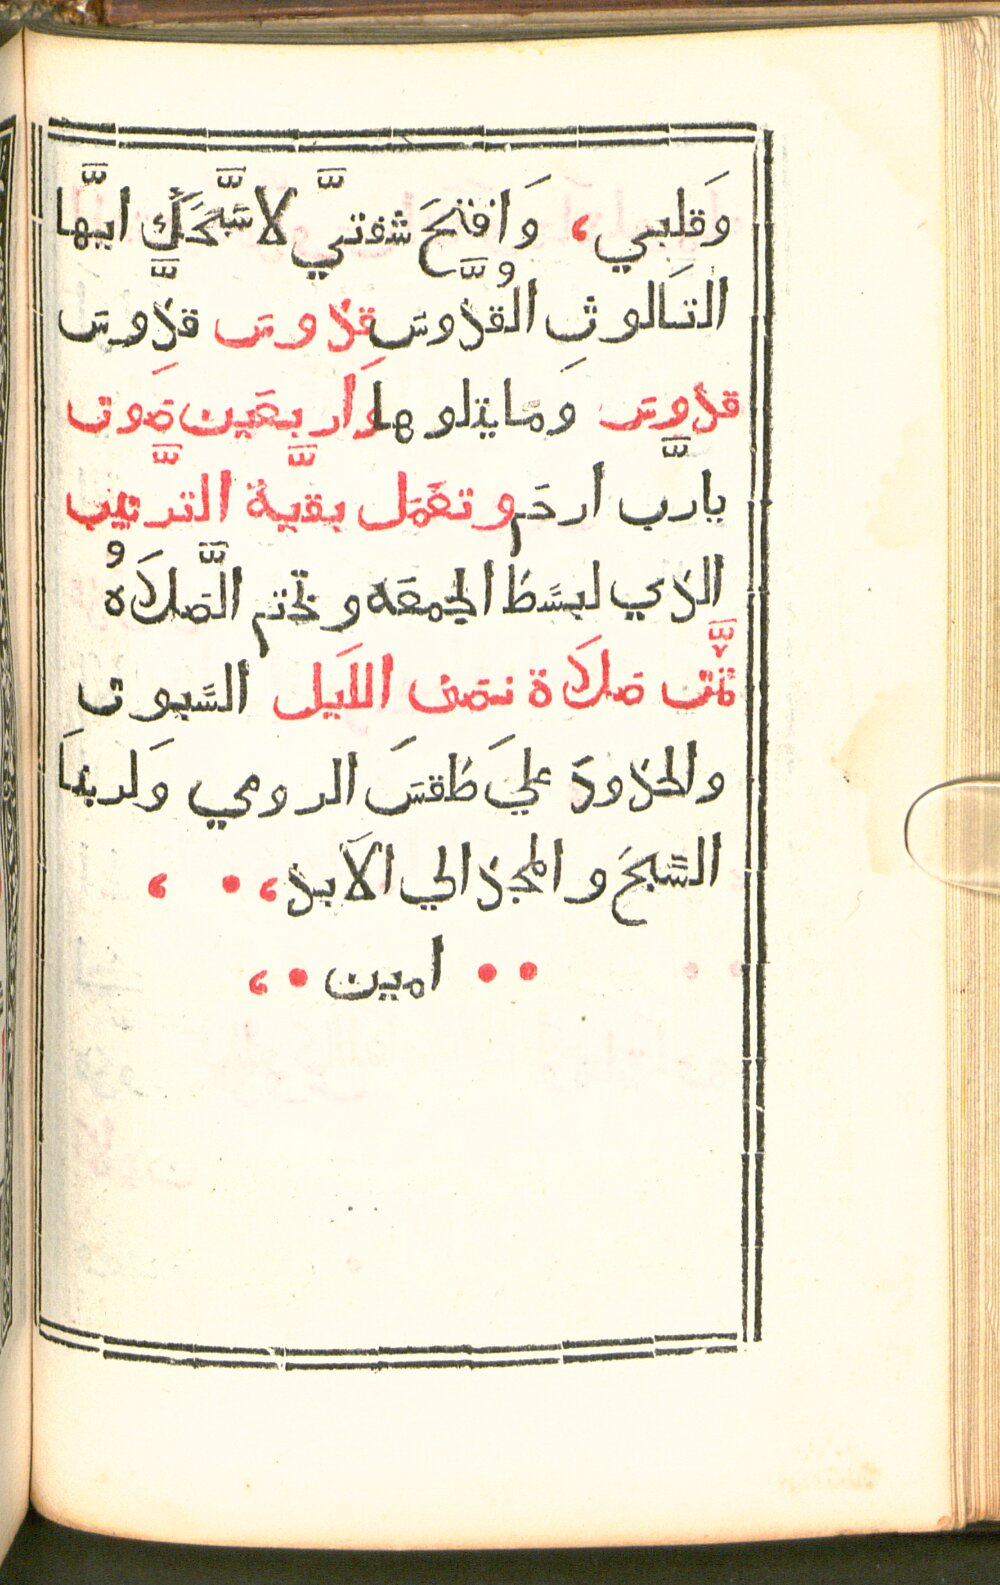 وَقلبي، وَافتحَ شفتيّ لاسَّبحَكَّ ايّها
التالوث القدّوسَ قدوسَ قدّوسَ
قدوسَ وَمَايتلوها وَاربعَين صَوت
يارّب ارحَم وتعَمَل بقيّة الترّتيب
الذي لبسَط الجمعَه وتختم الصّلاَة
تمّت صَلاَة نصَف اللَيل السَبوت
والحدود عليَ طقسَ الرومي وَلربنَا
السَبحَ والمجد الي الاَبد،
امين